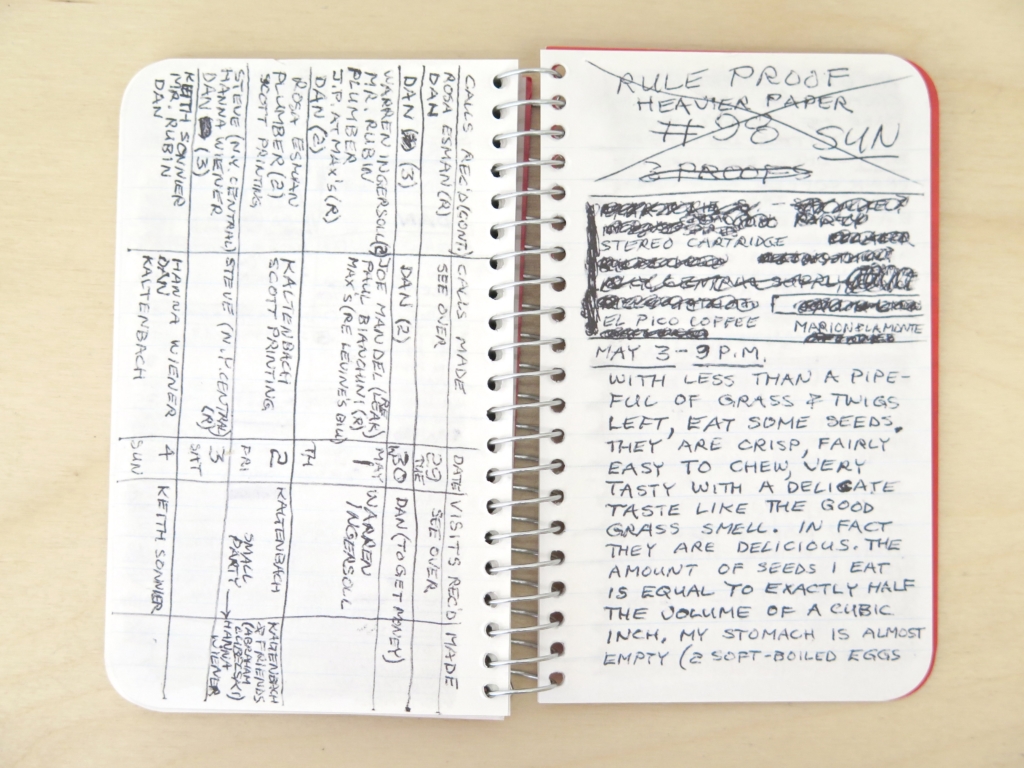 CALLS REC'D (CONT.)
CALLS MADE
DATE
VISITS REC'D
MADE
ROSA ESMAN (R)
DAN
SEE OVER
29
TUE
SEE OVER
DAN (3)
DAN (2)
30
W
DAN (TO GET MONEY)
WARREN INGERSOLL (2)
MR. RUBIN
PLUMBER
J.P. AT MAX'S (R)
DAN (2)
JOE MANDEL (LEAK)
PAUL BIANCHINI (R)
MAX'S (RE LEVINE'S BILL)
MAY
1
TH
WARREN
INGERSOLL
ROSA ESMAN
PLUMBER (2)
SCOTT PRINTING
KALTENBACH
SCOTT PRINTING
2
FRI
KALTENBACH
KALTENBACH
& FRIENDS
(ABRAHAM
LUBELSKI)
STEVE (N.Y. CENTRAL)
HANNA WIENER
DAN (3)
STEVE (N.Y. CENTRAL)
(R)
3
SAT
SMALL
PARTY → HANNA
WIENER
KEITH SONNIER
MR. RUBIN
DAN
HANNA WIENER
DAN
KALTENBACH
4
SUN
KEITH SONNIER
RULE PROOF
HEAVIER PAPER
#98 SUN
3 PROOFS
STEREO CARTRIDGE
EL PICO COFFEE
MARION LAMONTE
MAY 3 - 9 P.M.
WITH LESS THAN A PIPE-
FUL OF GRASS & TWIGS
LEFT, EAT SOME SEEDS.
THEY ARE CRISP, FAIRLY
EASY TO CHEW, VERY
TASTY WITH A DELICATE
TASTE LIKE THE GOOD
GRASS SMELL. IN FACT
THEY ARE DELICIOUS. THE
AMOUNT OF SEEDS I EAT
IS EQUAL TO EXACTLY HALF
THE VOLUME OF A CUBIC
INCH, MY STOMACH IS ALMOST
EMPTY (2 SOFT-BOILED EGGS